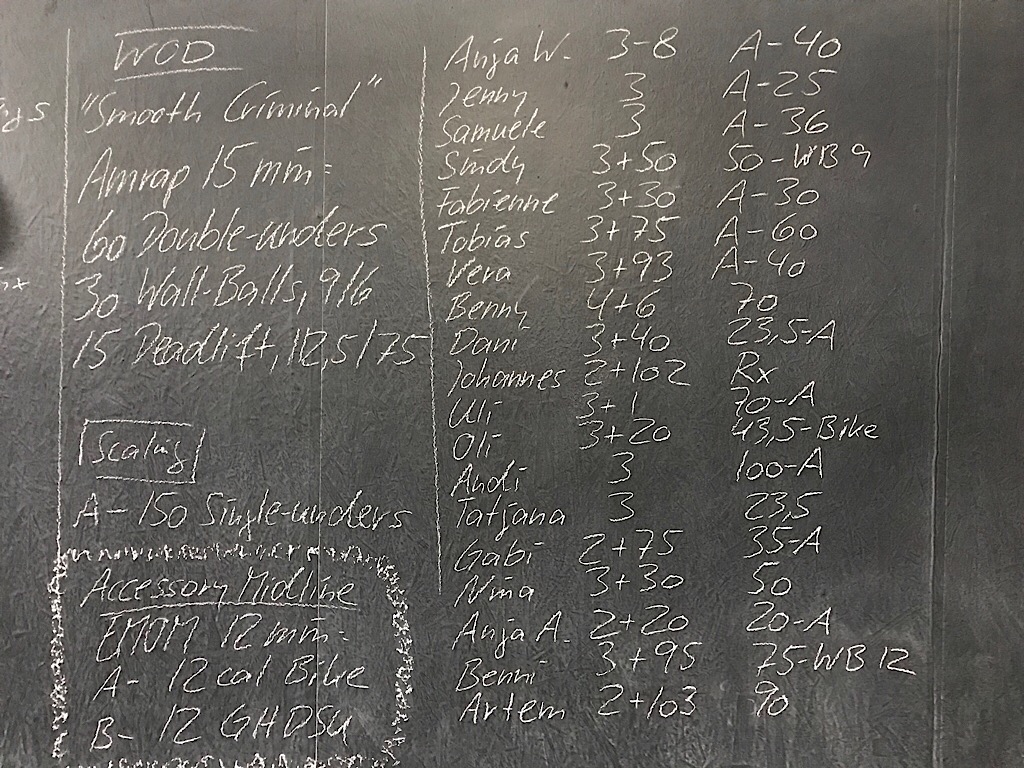 WOD
"Smooth Criminal"
Amrap 15 min:
60 Double-unders
30 Wall-Balls, 9/6
15 Deadlift, 112,5/75
Scaling
A- 150 Single-unders
Accessory Midline
EMOM 12 min:
A- 12 cal Bike
B- 12 GHDSU
Anja W. 3-8 A-40
Jenny 3 A-25
Samuele 3 A-36
Sindy 3+50 50-WB 9
Fabienne 3+30 A-30
Tobias 3+75 A-60
Vera 3+93 A-40
Benny 4+6 70
Dani 3+40 23,5-A
Johannes 2+102 Rx
Uli 3+1 70-A
Oli 3+20 43,5-Bike
Andi 3 100-A
Tatjana 3 23,5
Gabi 2+75 35-A
Nina 3+30 50
Anja A. 2+20 20-A
Benni 3+95 75-WB 12
Artem 2+103 90